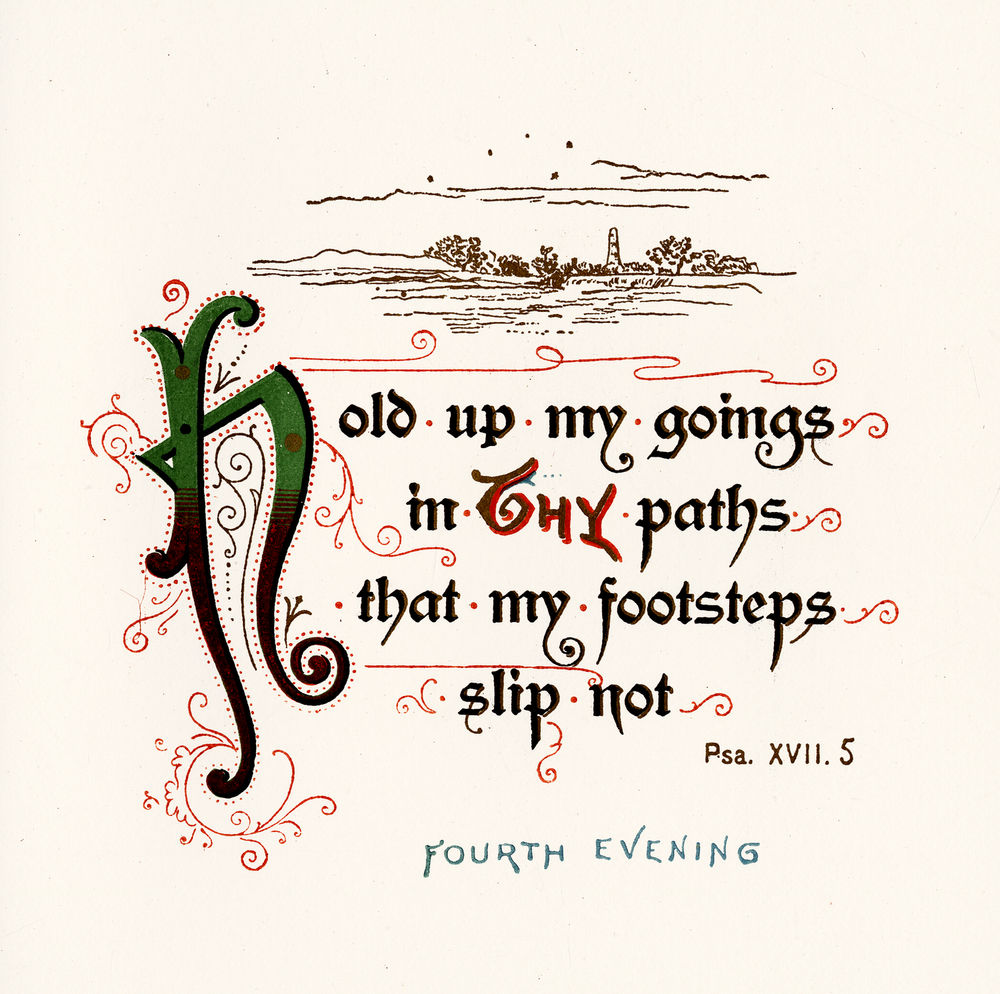 Hold · up · my · goings
in · THY · paths ·
· that · my · footsteps
· slip · not
Psa. XVII. 5
FOURTH EVENING